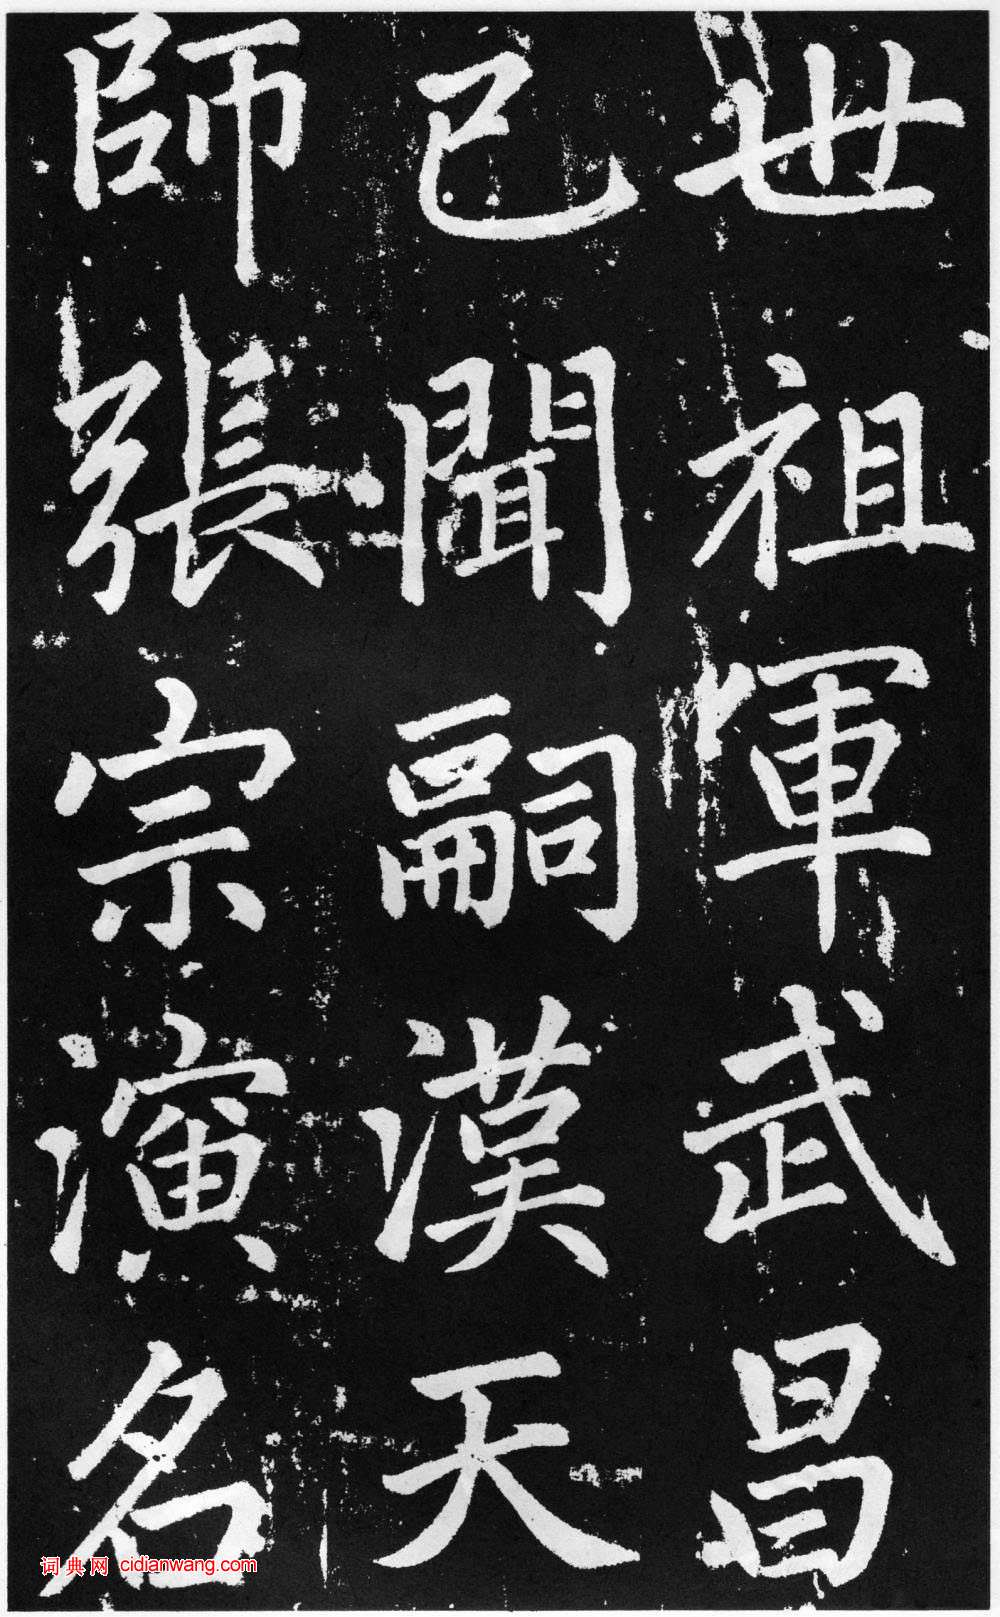 世祖軍武昌
已聞嗣漢天
師張宗演名
词典网 cidianwang.com